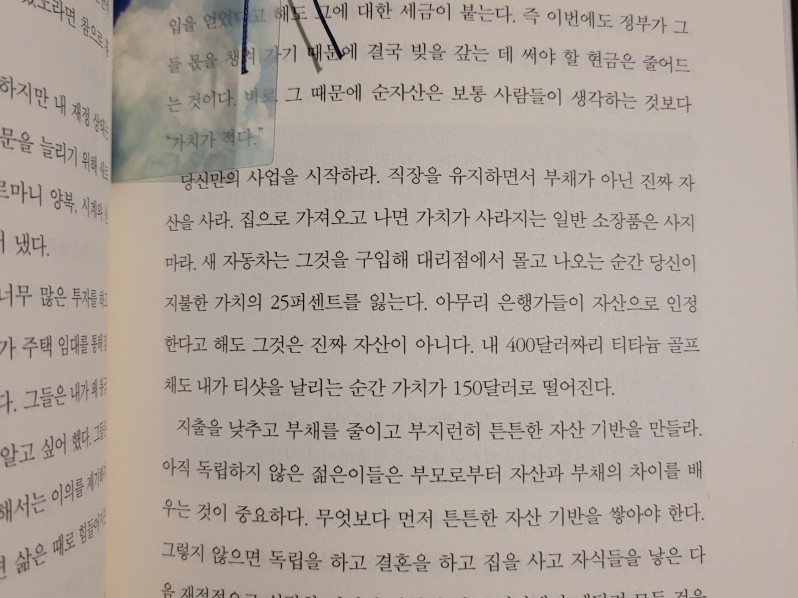 하지만 내 재정 상태는
문을 늘리기 위해 새로
르마니 양복, 시계와
냈다.
너무 많은 투자를 하고
가 주택 임대를 통해
다. 그들은 내가 왜
알고 싶어 했다. 그들은
해서는 이의를 제기하
삶은 때로 힘들어
입을 얻었다고 해도 그에 대한 세금이 붙는다. 즉 이번에도 정부가 그
들 몫을 챙겨 가기 때문에 결국 빚을 갚는 데 써야 할 현금은 줄어드
는 것이다. 바로 그 때문에 순자산은 보통 사람들이 생각하는 것보다
“가치가 적다.”
당신만의 사업을 시작하라. 직장을 유지하면서 부채가 아닌 진짜 자
산을 사라. 집으로 가져오고 나면 가치가 사라지는 일반 소장품은 사지
마라. 새 자동차는 그것을 구입해 대리점에서 몰고 나오는 순간 당신이
지불한 가치의 25퍼센트를 잃는다. 아무리 은행가들이 자산으로 인정
한다고 해도 그것은 진짜 자산이 아니다. 내 400달러짜리 티타늄 골프
채도 내가 티샷을 날리는 순간 가치가 150달러로 떨어진다.
지출을 낮추고 부채를 줄이고 부지런히 튼튼한 자산 기반을 만들라.
아직 독립하지 않은 젊은이들은 부모로부터 자산과 부채의 차이를 배
우는 것이 중요하다. 무엇보다 먼저 튼튼한 자산 기반을 쌓아야 한다.
그렇지 않으면 독립을 하고 결혼을 하고 집을 사고 자식들을 낳은 다
음 재정적으로